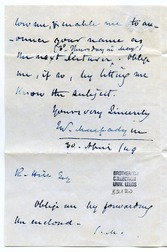 low me, & enable me to an-
nounce your name as
(for Thursday in May)
the next lecturer. Oblige
me, if so, by letting me
know the subject.
Yours very Sincerely
30. April /49
R. Hill Esq
BROTHERTON
COLLECTION
UNIV. LEEDS
Oblige me by forwarding
the enclosed —